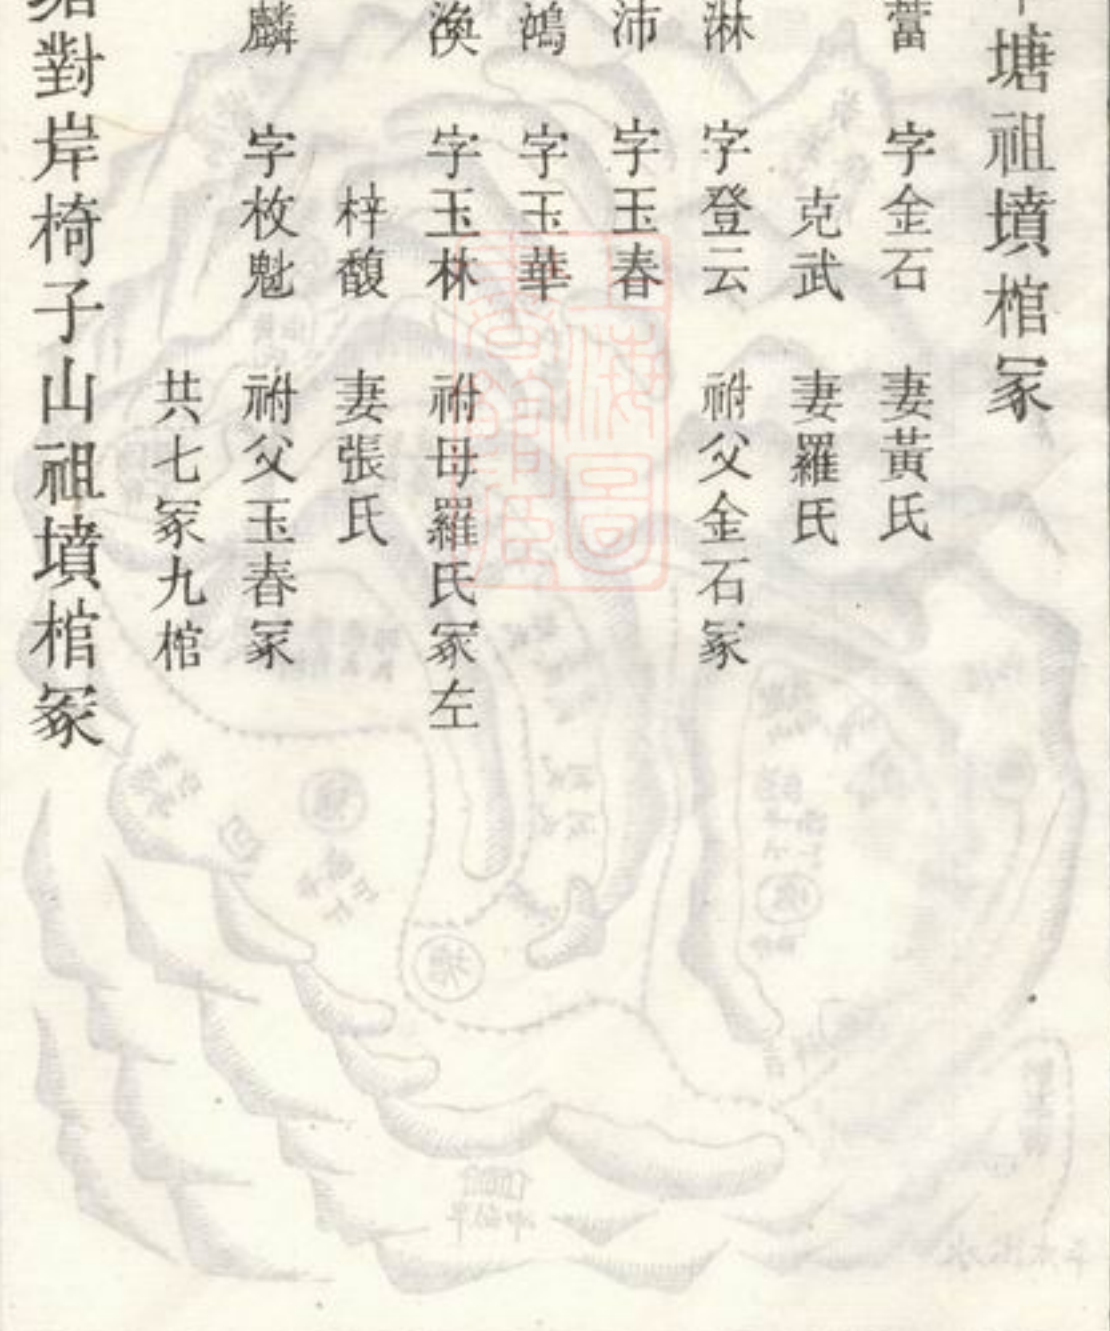 塘祖墳棺冢
蕾 字金石 妻黃氏
克武 妻羅氏
淋 字登云 祔父金石冢
沛 字玉春
鴻 字玉華
渙 字玉林 祔母羅氏冢左
梓馥 妻張氏
麟 字枚魁 祔父玉春冢
共七冢九棺
對岸椅子山祖墳棺冢
上海圖書館藏